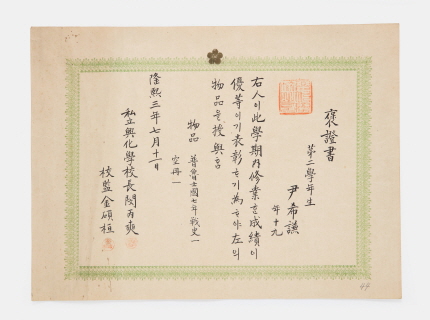 褒證書
第二學年生
尹希讓
年十九
右人이此學期內修業한成績이
優等이기表彰하기爲하야左의
物品을授與홈
物品 普魯士國七年戰史一
空冊一
隆熙三年七月十二日
私立興化學校長閔丙奭
校監金碩桓
44